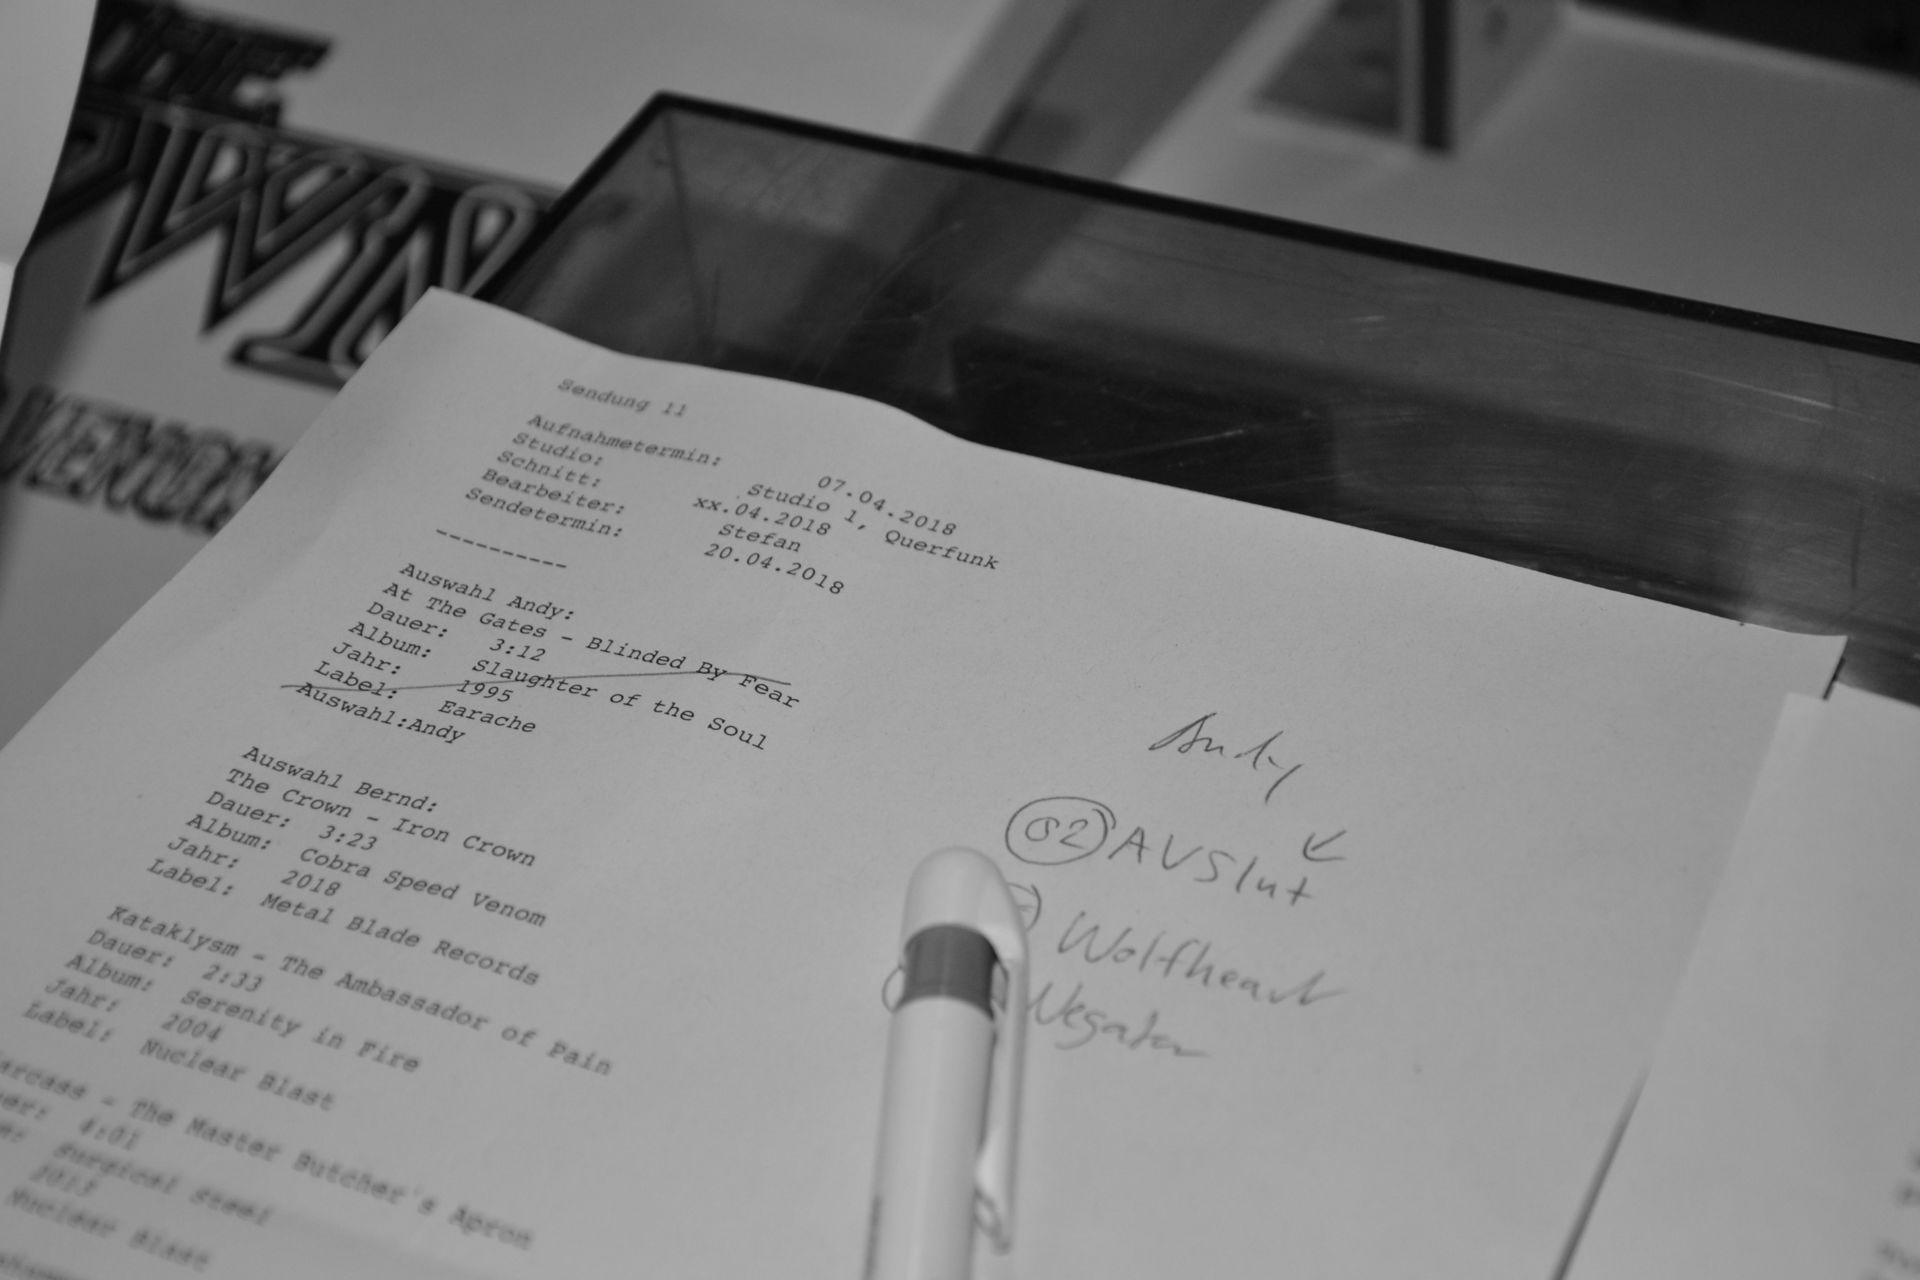 THE
VENOM
Sendung 11
Aufnahmetermin: 07.04.2018
Studio: Studio 1, Querfunk
Schnitt: xx.04.2018
Bearbeiter: Stefan
Sendetermin: 20.04.2018
---------
Auswahl Andy:
At The Gates - Blinded By Fear
Dauer: 3:12
Album: Slaughter of the Soul
Jahr: 1995
Label: Earache
Auswahl:Andy
Auswahl Bernd:
The Crown - Iron Crown
Dauer: 3:23
Album: Cobra Speed Venom
Jahr: 2018
Label: Metal Blade Records
Kataklysm - The Ambassador of Pain
Dauer: 2:33
Album: Serenity in Fire
Jahr: 2004
Label: Nuclear Blast
arcass - The Master Butcher's Apron
er: 4:01
surgical steel
2013
Nuclear Blast
Andy
AVSlut
Wolfheart
Negator